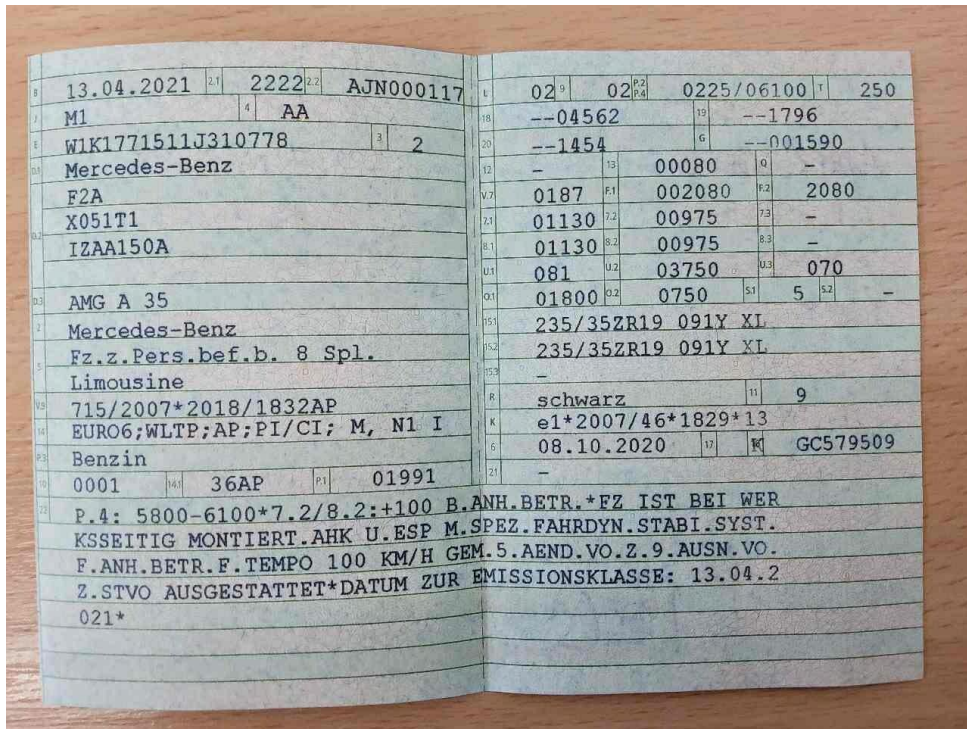 B 13.04.2021 2.1 2222 2.2 AJN000117
J M1 4 AA
E W1K1771511J310778 3 2
D.1 Mercedes-Benz
F2A
X051T1
D.2 IZAA150A
D.3 AMG A 35
2 Mercedes-Benz
5 Fz.z.Pers.bef.b. 8 Spl.
Limousine
V.9 715/2007*2018/1832AP
14 EURO6;WLTP;AP;PI/CI; M, N1 I
P.3 Benzin
10 0001 14.1 36AP P.1 01991
L 02 9 02 P.2 P.4 0225/06100 T 250
18 --04562 19 --1796
20 --1454 G --001590
12 – 13 00080 Q –
V.7 0187 F.1 002080 F.2 2080
7.1 01130 7.2 00975 7.3 –
8.1 01130 8.2 00975 8.3 –
U.1 081 U.2 03750 U.3 070
O.1 01800 O.2 0750 S.1 5 S.2 –
15.1 235/35ZR19 091Y XL
15.2 235/35ZR19 091Y XL
15.3 –
R schwarz 11 9
K e1*2007/46*1829*13
6 08.10.2020 17 K GC579509
21 –
22 P.4: 5800-6100*7.2/8.2:+100 B.ANH.BETR.*FZ IST BEI WER
KSSEITIG MONTIERT.AHK U.ESP M.SPEZ.FAHRDYN.STABI.SYST.
F.ANH.BETR.F.TEMPO 100 KM/H GEM.5.AEND.VO.Z.9.AUSN.VO.
Z.STVO AUSGESTATTET*DATUM ZUR EMISSIONSKLASSE: 13.04.2
021*